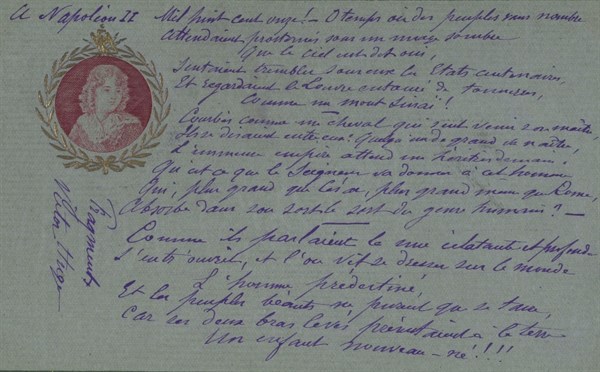 A Napoléon II
Mil huit cent onze ! – O temps où des peuples sans nombre
Attendaient prosternés sous un nuage sombre
Que le ciel eut dit oui,
Sentaient trembler sous eux les Etats centenaires,
Et regardaient le Louvre entouré de tonnerres,
Comme un mont Sinaï !
Courbés comme un cheval qui sent venir son maître,
Ils se disaient entre eux : Quelqu'un de grand va naître,
L'immense empire attend un héritier demain.
Qu'est ce que le Seigneur va donner à cet homme
Qui, plus grand que César, plus grand même que Rome,
Absorbe dans son sort le sort du genre humain ? –
Comme ils parlaient la nue éclatante et profonde
S'entr'ouvrit, et l'on vit se dresser sur le monde
L'homme prédestiné,
Et les peuples béants ne purent que se taire,
Car ses deux bras levés présentaient à la terre
Un enfant nouveau-né ! ! ! !
Fragments
Victor Hugo